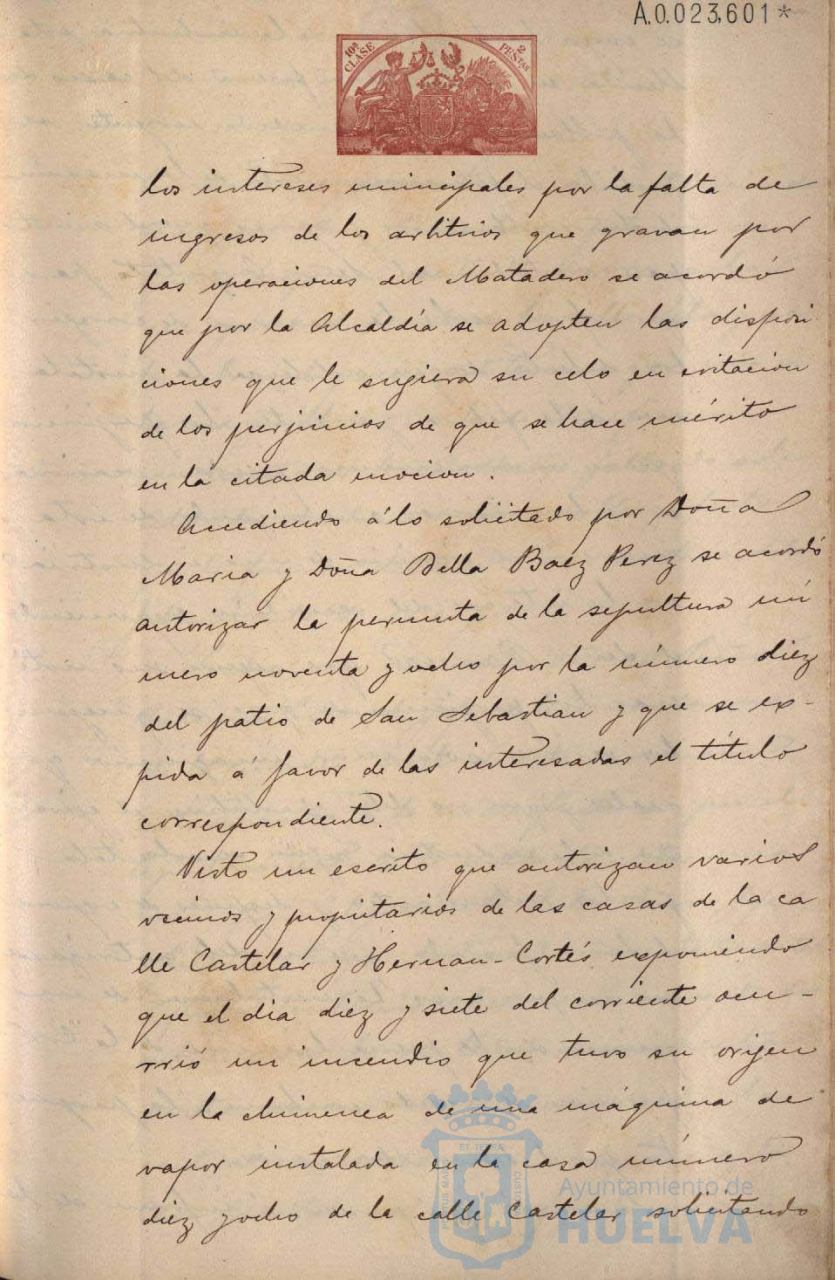 A.0.023,601*
10ª CLASE 2 PESTAS
los intereses municipales por la falta de
ingresos de los arbitrios que gravan por
las operaciones del Matadero se acordó
que por la Alcaldía se adopten las disposi
ciones que le sugiera su celo en evitacion
de los perjuicios de que se hace mérito
en la citada mocion.
Accediendo á lo solicitado por Doña
Maria y Doña Bella Baez Perez se acordó
autorizar la permuta de la sepultura nú
mero noventa y ocho por la número diez
del patio de San Sebastian y que se ex-
pida á favor de las interesadas el título
correspondiente.
Visto un escrito que autorizan varios
vecinos y propietarios de las casas de la ca
lle Castelar y Hernan-Cortés exponiendo
que el dia diez y siete del corriente ocu-
rrió un incendio que tuvo su origen
en la chimenea de una máquina de
vapor instalada en la casa número
diez y ocho de la calle Castelar solicitando
Ayuntamiento de
HUELVA